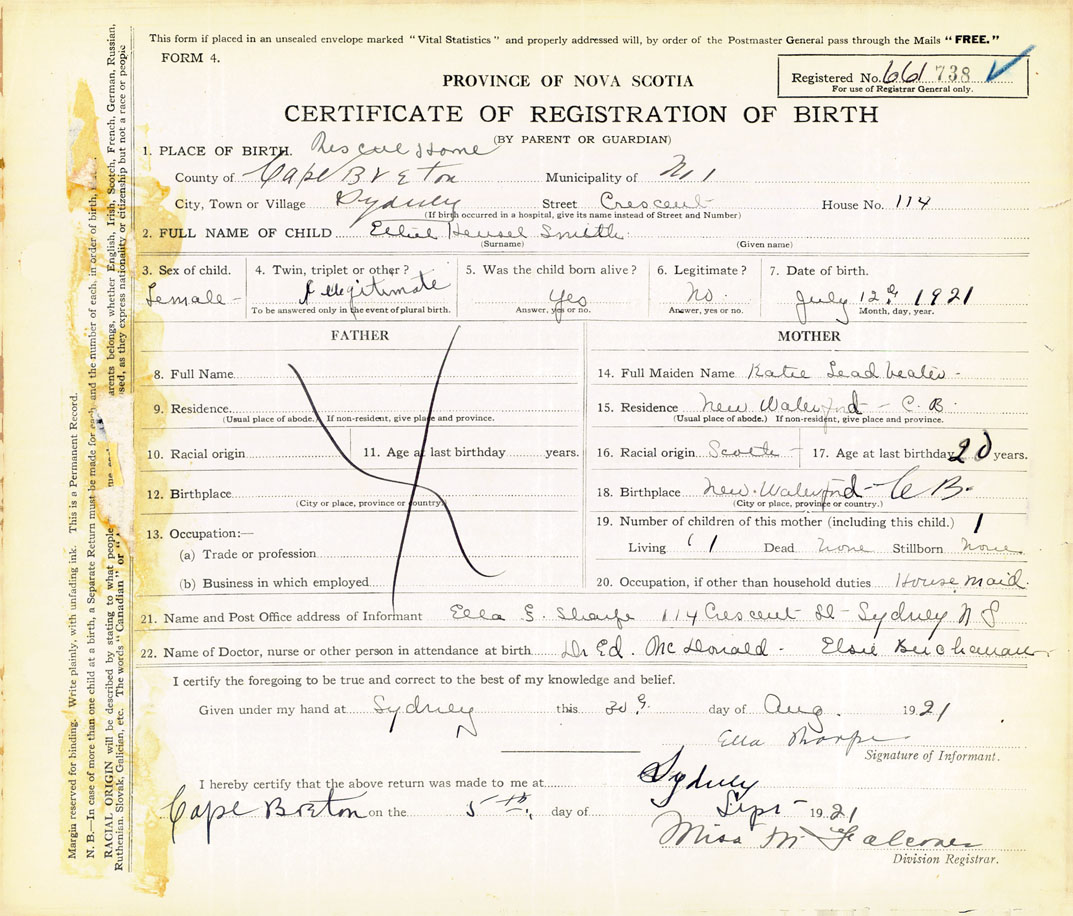 This form if placed in an unsealed envelope marked "Vital Statistics" and properly addressed will, by order of the Postmaster General pass through the Mails "FREE."
FORM 4.
Registered No. 661 738
For use of Registrar General only.
PROVINCE OF NOVA SCOTIA
CERTIFICATE OF REGISTRATION OF BIRTH
(BY PARENT OR GUARDIAN)
1. PLACE OF BIRTH. Rescue Home
County of Cape Breton Municipality of No 1
City, Town or Village Sydney Street Crescent House No. 114
(If birth occurred in a hospital, give its name instead of Street and Number)
2. FULL NAME OF CHILD Smith
(Surname) (Given name)
3. Sex of child. 4. Twin, triplet or other? 5. Was the child born alive? 6. Legitimate? 7. Date of birth.
Female - Illegitimate Yes No. July 12th 1921
To be answered only in the event of plural birth. Answer, yes or no. Answer, yes or no. Month, day, year.
FATHER MOTHER
8. Full Name 14. Full Maiden Name Katie Leadbeater -
9. Residence 15. Residence New Waterford - C. B.
(Usual place of abode.) If non-resident, give place and province. (Usual place of abode.) If non-resident, give place and province.
10. Racial origin 11. Age at last birthday years. 16. Racial origin Scotch - 17. Age at last birthday 20 years.
12. Birthplace 18. Birthplace New. Waterford - C B.
(City or place, province or country.) (City or place, province or country.)
13. Occupation:— 19. Number of children of this mother (including this child.) 1
(a) Trade or profession Living 1 Dead None Stillborn None
(b) Business in which employed 20. Occupation, if other than household duties House maid.
21. Name and Post Office address of Informant Ella E. Sharpe 114 Crescent St - Sydney N S
22. Name of Doctor, nurse or other person in attendance at birth Dr Ed. McDonald - Elsie Buchanan
I certify the foregoing to be true and correct to the best of my knowledge and belief.
Given under my hand at Sydney this 30 day of Aug. 1921
Ella Sharpe
Signature of Informant.
I hereby certify that the above return was made to me at Sydney
Cape Breton on the 5th day of Sept 1921
Miss M Falconer
Division Registrar.
Margin reserved for binding. Write plainly, with unfading ink. This is a Permanent Record.
N. B.—In case of more than one child at a birth, a Separate Return must be made for each, and the number of each, in order of birth,
RACIAL ORIGIN will be described by stating to what people arents belongs, whether English, Irish, Scotch, French, German, Russian,
Ruthenian, Slovak, Galician, etc. The words "Canadian" or " sed, as they express nationality or citizenship but not a race or people